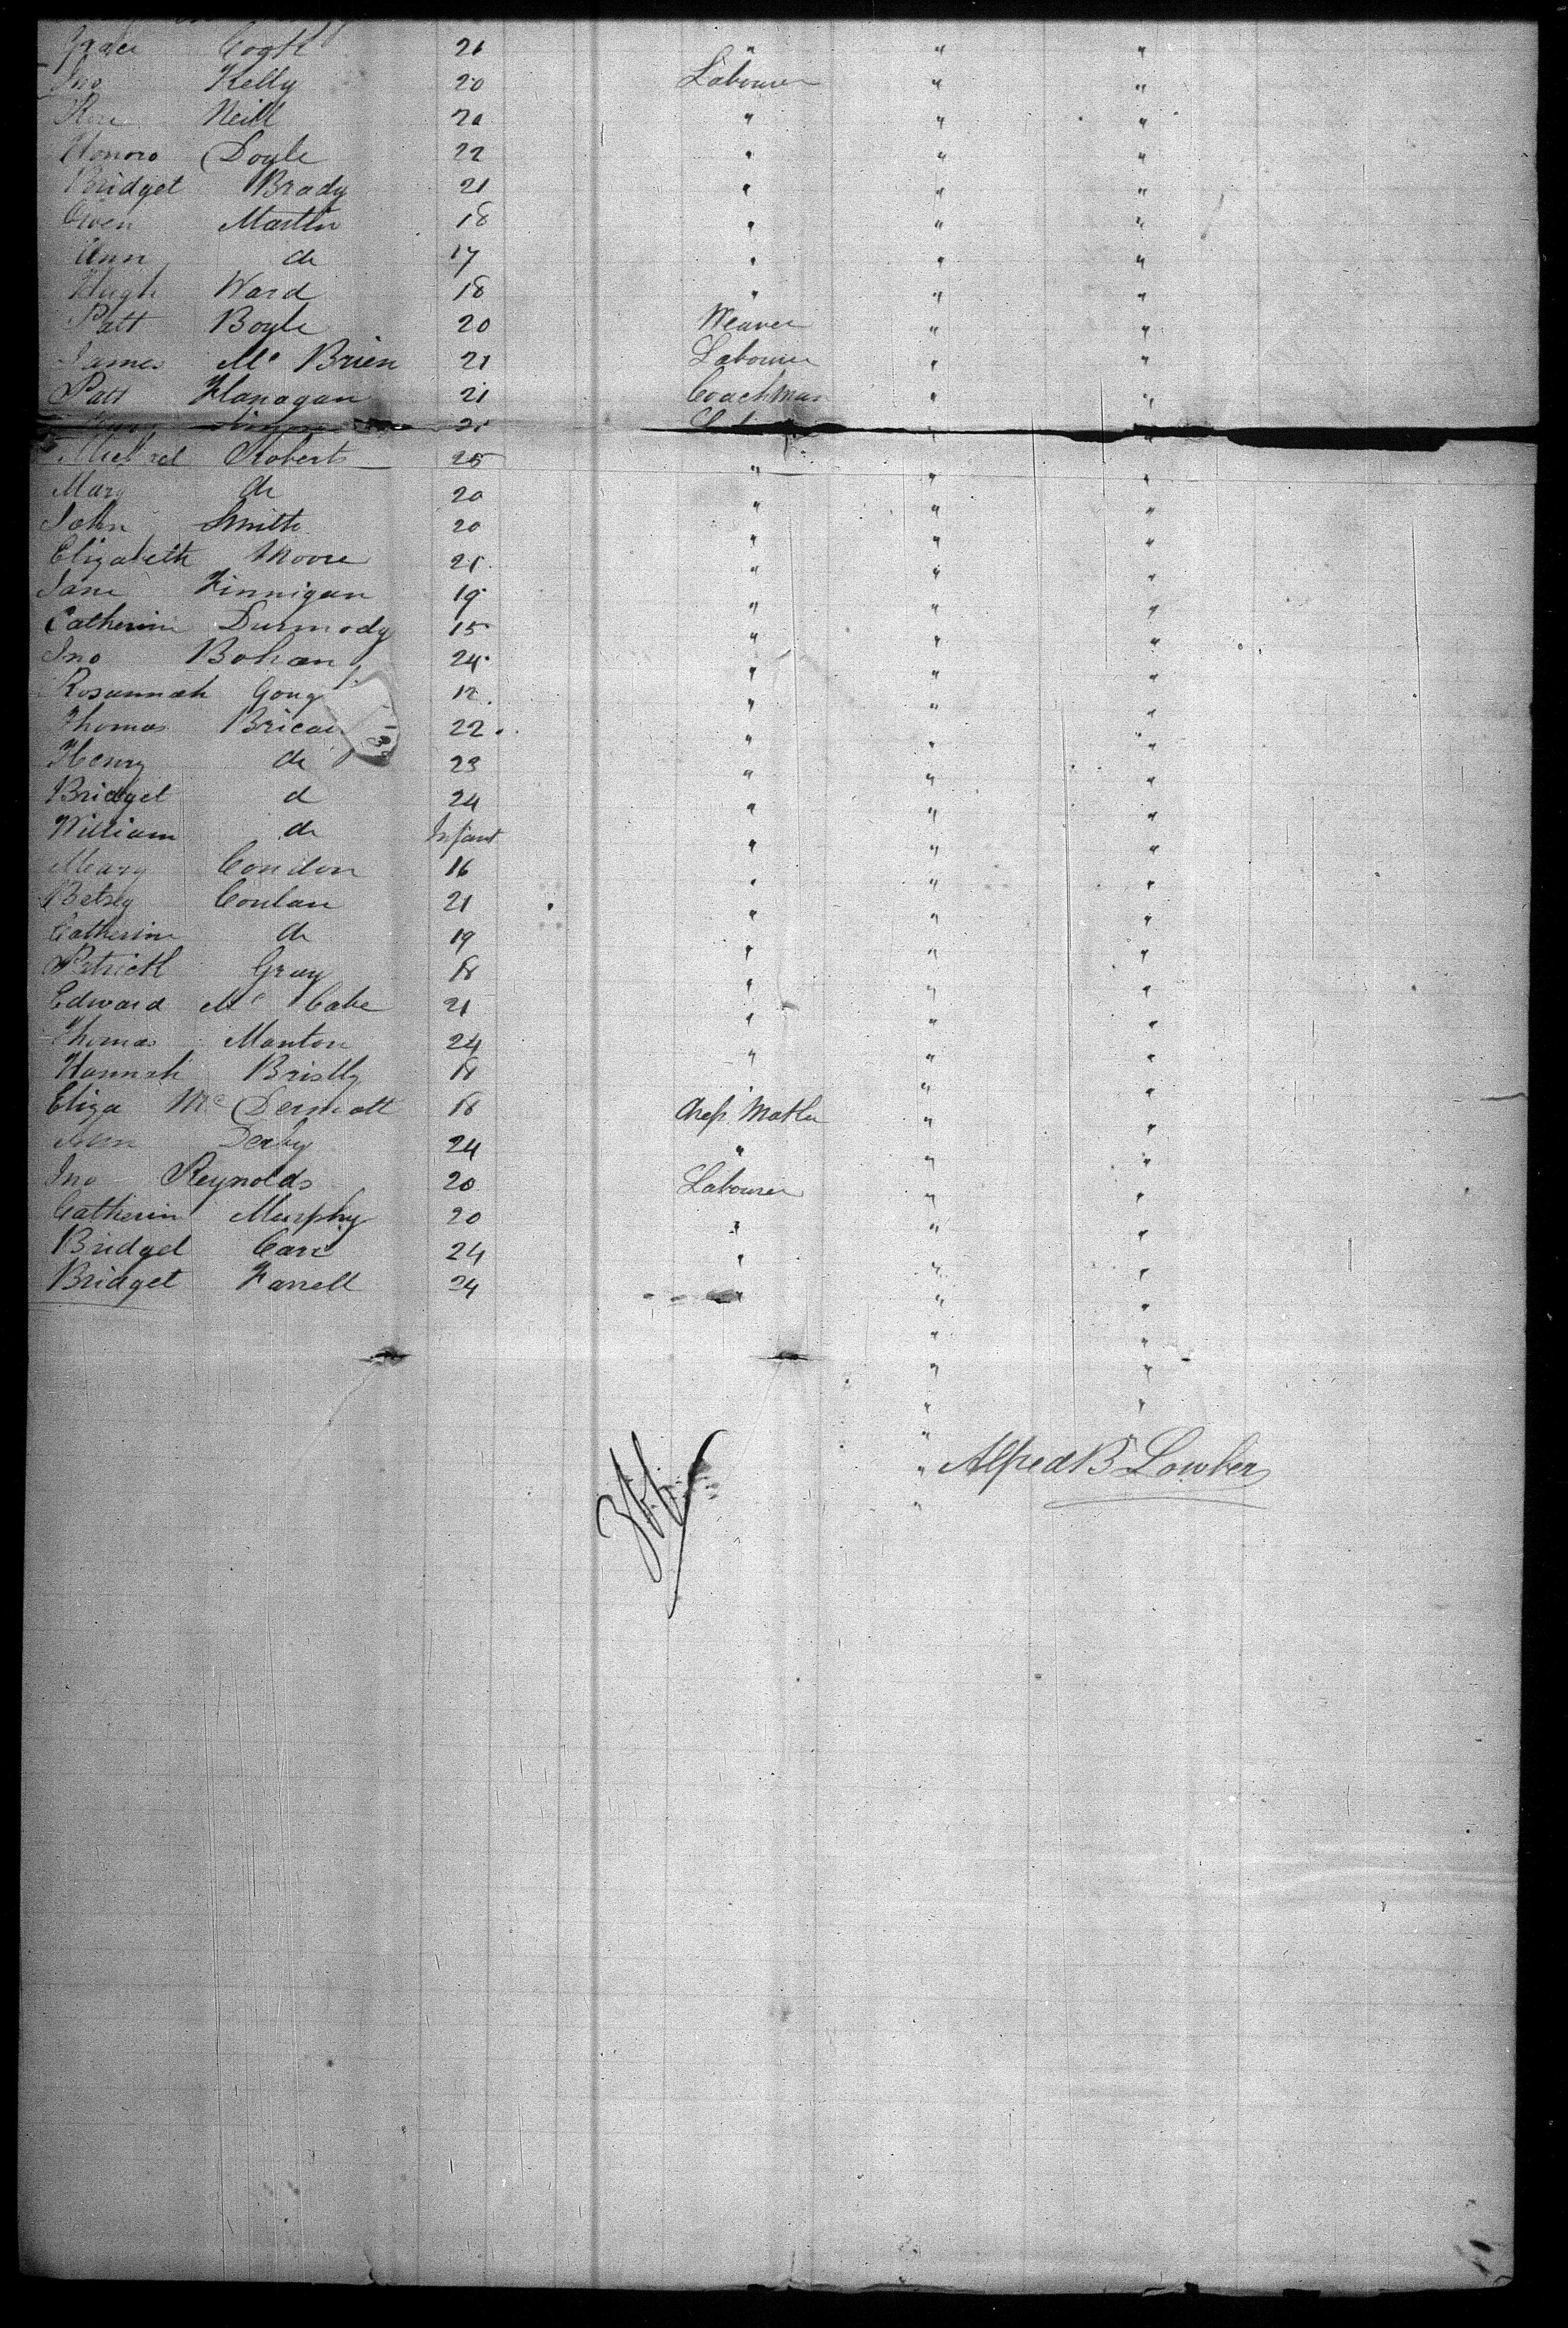 Grace Cogh 21 " " "
Jno Kelly 20 Labourer " "
Rose Neill 20 " " "
Honoro Doyle 22 " " "
Bridget Brady 21 " " "
Owen Martin 18 " " "
Ann do 17 " " "
Hugh Ward 18 " " "
Patt Boyle 20 Weaver " "
James Mc Brien 21 Labourer " "
Patt Flanagan 21 Coachman " "
21
Michael Roberts 25 " " "
Mary do 20 " " "
John Smith 20 " " "
Elizabeth Moore 21 " " "
Jane Finnigan 19 " " "
Catherine Durmody 15 " " "
Jno Bohan 24 " " "
Rosannah Goug 12 " " "
Thomas 22 " " "
Henry do 23 " " "
Bridget d 24 " " "
William do Infant " " "
Mary Condon 16 " " "
Betsey Conlan 21 " " "
Catherine do 19 " " "
Patrick Gray 18 " " "
Edward Mc Cabe 21 " " "
Thomas Manton 24 " " "
Hannah 18 " " "
Eliza Mc Dermott 18 " "
Derby 24 " " "
Jno Reynolds 20 Labourer " "
Catherin Murphy 20 " " "
Bridget Carr 24 " " "
Bridget Farrell 24 " " "
Alfred B Lowber